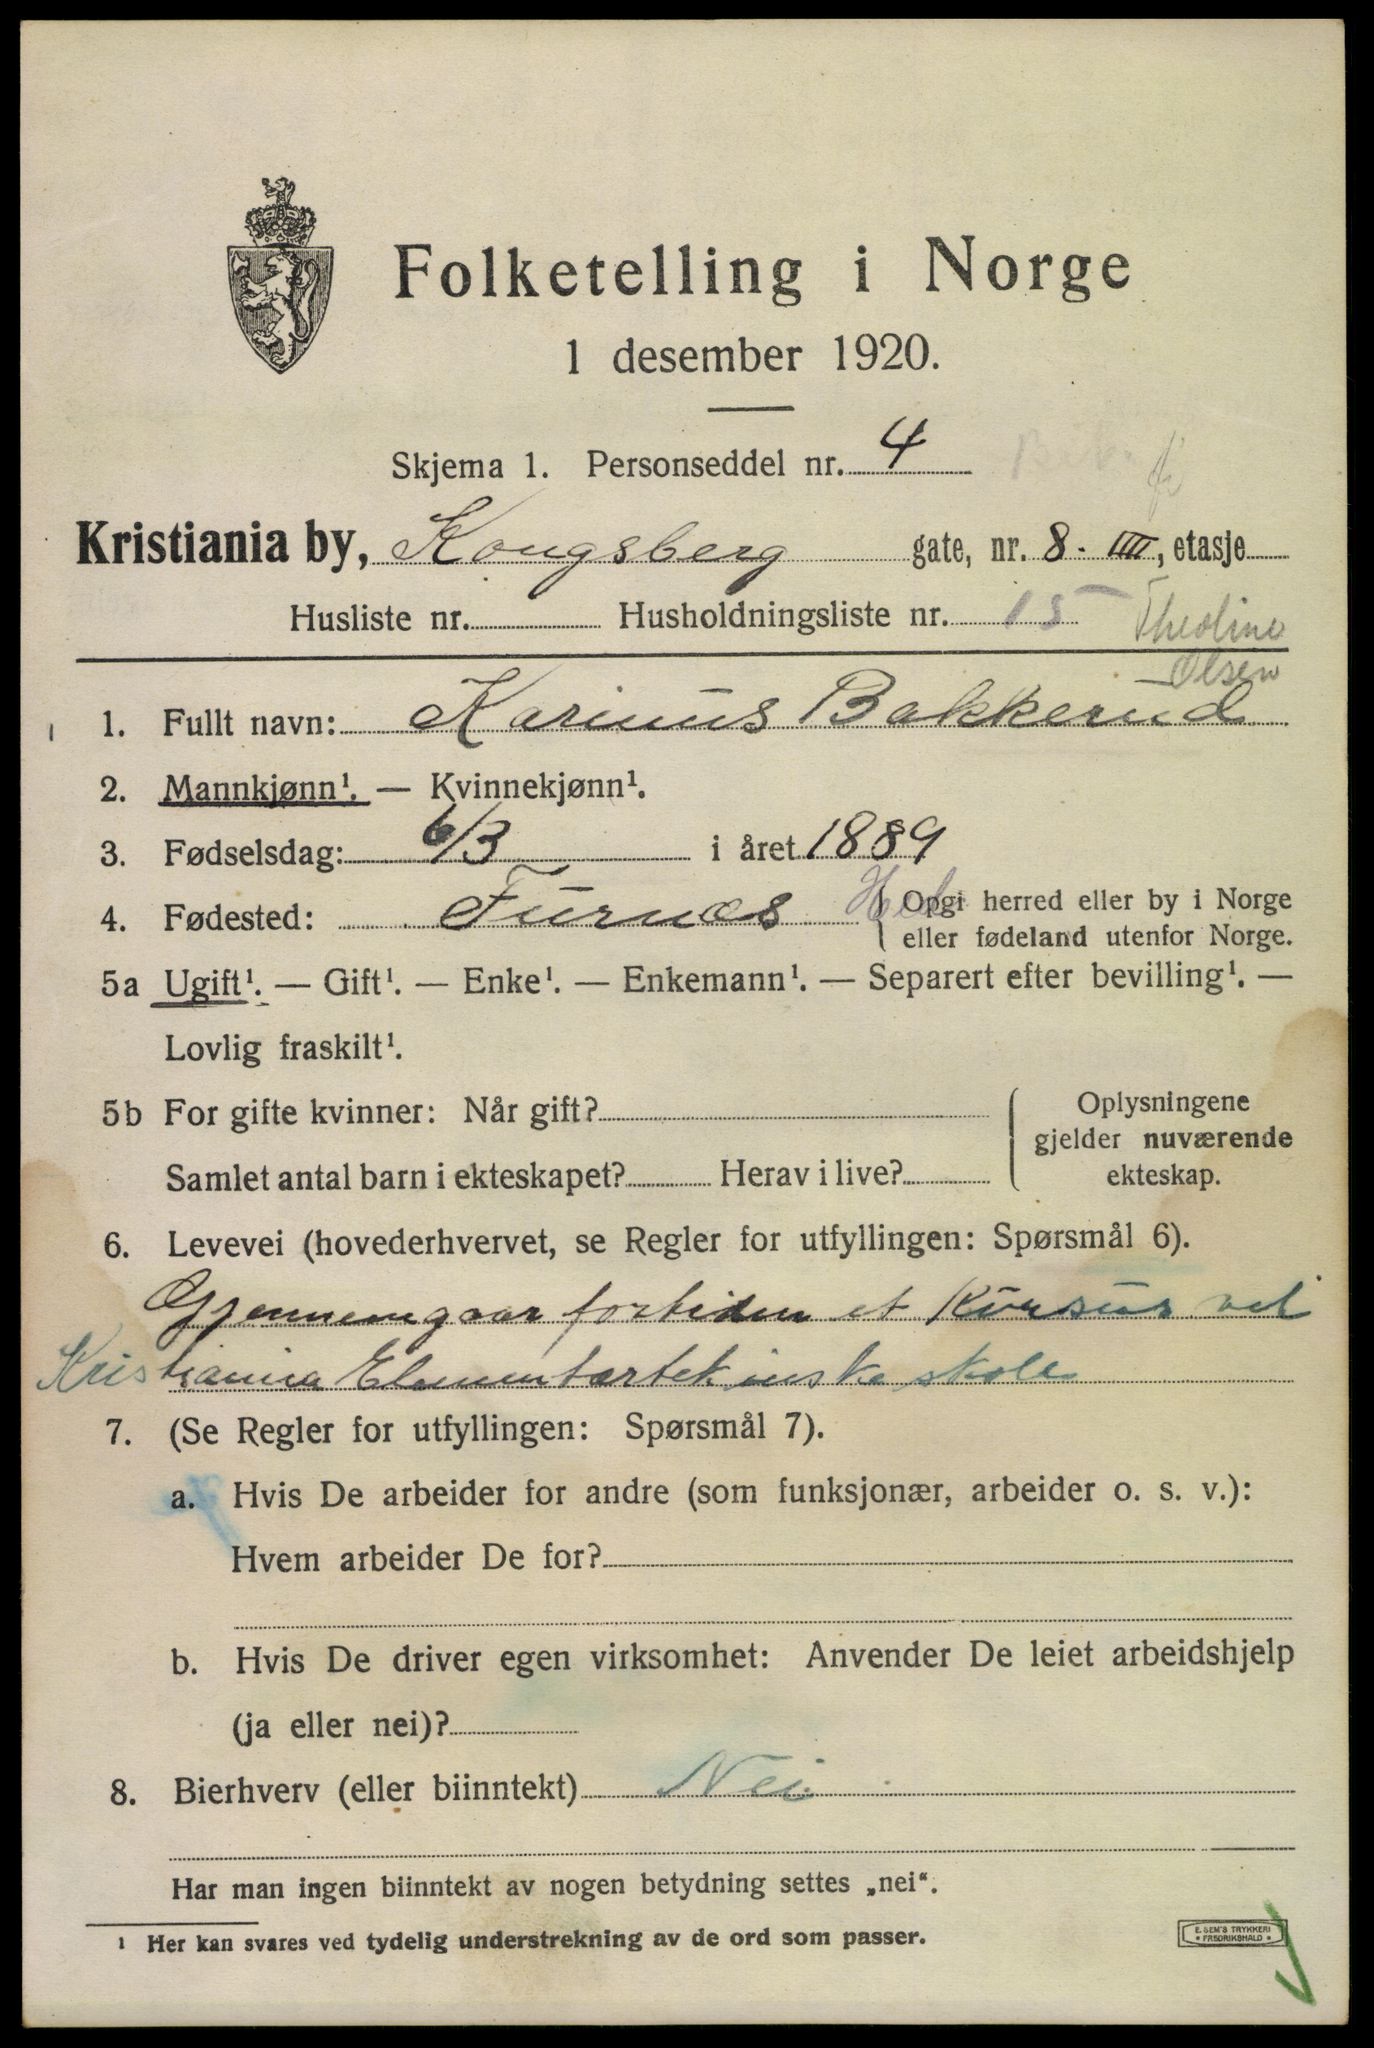 Folketelling i Norge
1 desember 1920.
Skjema 1. Personseddel nr. 4
Kristiania by, Kongsberg gate, nr. 8. IIII, etasje
Husliste nr. Husholdningsliste nr. 15 Thedine
Olsen
1. Fullt navn: Karinus Bakkerud
2. Mannkjønn¹. — Kvinnekjønn¹.
3. Fødselsdag: 6/3 i året 1889
4. Fødested: Furnes { Opgi herred eller by i Norge
eller fødeland utenfor Norge.
5a Ugift¹. — Gift¹. — Enke¹. — Enkemann¹. — Separert efter bevilling¹. —
Lovlig fraskilt¹.
5b For gifte kvinner: Når gift? { Oplysningene
gjelder nuværende
Samlet antal barn i ekteskapet? Herav i live? ekteskap.
6. Levevei (hovederhvervet, se Regler for utfyllingen: Spørsmål 6).
Gjennemgaar fortiden et Kursus ved
Kristiania Elementærtekinske skole
7. (Se Regler for utfyllingen: Spørsmål 7).
a. Hvis De arbeider for andre (som funksjonær, arbeider o. s. v.):
Hvem arbeider De for?
b. Hvis De driver egen virksomhet: Anvender De leiet arbeidshjelp
(ja eller nei)?
8. Bierhverv (eller biinntekt) Nei
Har man ingen biinntekt av nogen betydning settes „nei“.
¹ Her kan svares ved tydelig understrekning av de ord som passer.
E. SEM'S TRYKKERI
FREDRIKSHALD